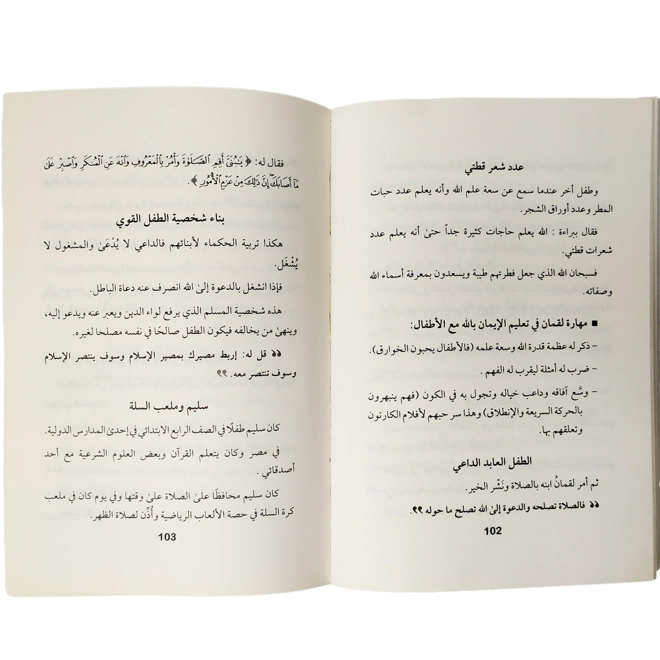 عدد شعر قطتي
وطفل أخر عندما سمع عن سعة علم الله وأنه يعلم عدد حبات
المطر وعدد أوراق الشجر.
فقال ببراءة : الله يعلم حاجات كثيرة جداً حتىٰ أنه يعلم عدد
شعرات قطتي.
فسبحان الله الذي جعل فطرتهم طيبة ويسعدون بمعرفة أسماء الله
وصفاته.
■ مهارة لقمان في تعليم الإيمان بالله مع الأطفال:
– ذكر له عظمة قدرة الله وسعة علمه (فالأطفال يحبون الخوارق).
– ضرب له أمثلة ليقرب له الفهم .
– وسَّع آفاقه وداعب خياله وتجول به في الكون (فهم ينبهرون
بالحركة السريعة والإنطلاق) وهذا سر حبهم لأفلام الكارتون
وتعلقهم بها.
الطفل العابد الداعي
ثم أمر لقمانُ ابنه بالصلاة ونَشْر الخير.
❝ فالصلاة تصلحه والدعوة إلىٰ الله تصلح ما حوله ❞.
102
فقال له: ﴿ يَٰبُنَيَّ أَقِمِ ٱلصَّلَوٰةَ وَأۡمُرۡ بِٱلۡمَعۡرُوفِ وَٱنۡهَ عَنِ ٱلۡمُنكَرِ وَٱصۡبِرۡ عَلَىٰ
مَآ أَصَابَكَۖ إِنَّ ذَٰلِكَ مِنۡ عَزۡمِ ٱلۡأُمُورِ ﴾.
بناء شخصية الطفل القوي
هكذا تربية الحكماء لأبنائهم فالداعي لا يُدْعَىٰ والمشغول لا
يُشْغَل.
فإذا انشغل بالدعوة إلىٰ الله انصرف عنه دعاة الباطل.
هذه شخصية المسلم الذي يرفع لواء الدين ويعبر عنه ويدعو إليه،
وينهىٰ من يخالفه فيكون الطفل صالحًا في نفسه مصلحا لغيره.
❝ قل له: إربط مصيرك بمصير الإسلام وسوف ينتصر الإسلام
وسوف تنتصر معه. ❞
سليم وملعب السلة
كان سليم طفلًا في الصف الرابع الابتدائي في إحدىٰ المدارس الدولية.
في مصر وكان يتعلم القرآن وبعض العلوم الشرعية مع أحد
أصدقائي .
كان سليم محافظًا علىٰ الصلاة علىٰ وقتها وفي يوم كان في ملعب
كرة السلة في حصة الألعاب الرياضية وأُذِّن لصلاة الظهر.
103